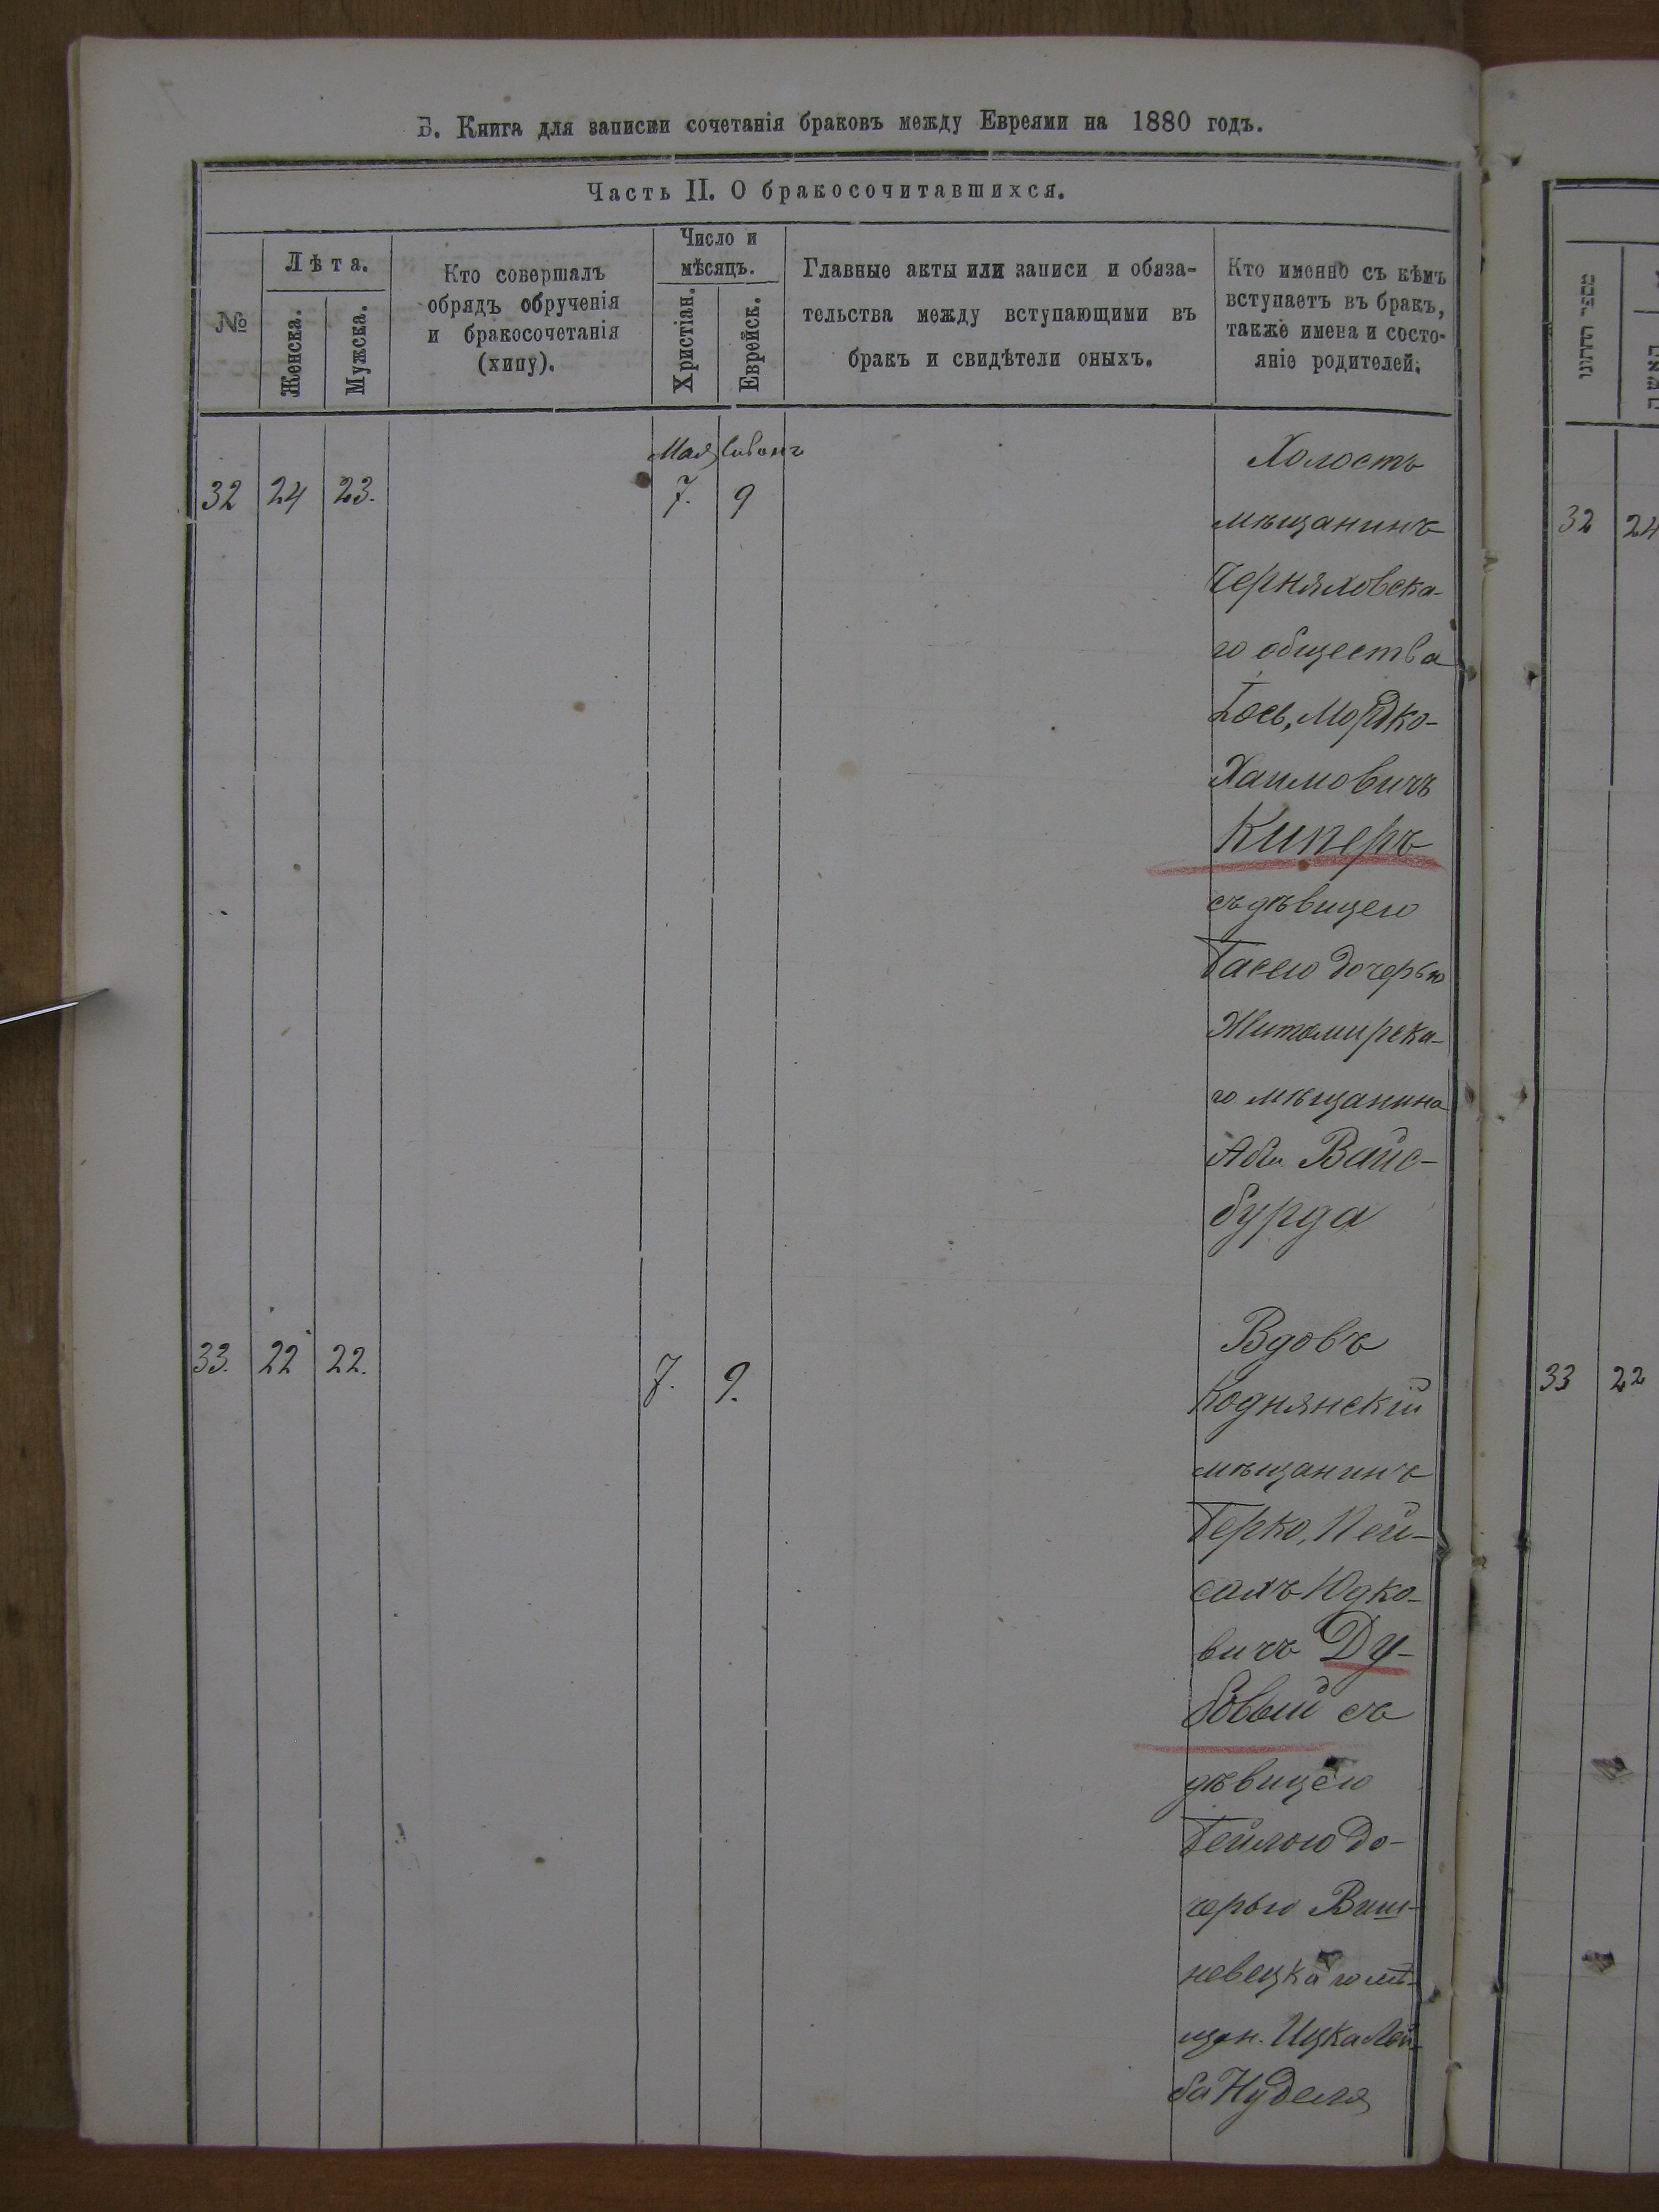 Б. Книга для записки сочетанія браковъ между Евреями на 1880 годъ.
Часть II. О бракосочитавшихся.
№
Лѣта.
Женска.
Мужска.
Кто совершалъ
обрядъ обрученія
и бракосочетанія
(хипу).
Число и
мѣсяцъ.
Христіан.
Еврейск.
Главные акты или записи и обяза-
тельства между вступающими въ
бракъ и свидѣтели оныхъ.
Кто именно съ кѣмъ
вступаетъ въ бракъ,
также имена и состо-
яніе родителей.
Мая Сивонъ
32 24 23. 7. 9
Холостъ
мѣщанинъ
Черняховска-
го общества
Іось, Мордко-
Хаимовичъ
Киперъ
съ дѣвицею
Басею дочерью
Житомирска-
го мѣщанина
Абы Вайс-
бурда
33. 22 22. 7. 9.
Вдовъ
Коднянскій
мѣщанинъ
Берко, Пей-
сахъ Юдко-
вичъ Ду-
бовый съ
дѣвицею
Бейлою до-
черью Виш-
невецкаго мѣ-
щан. Ицка Лей-
ба Нуделя
מספר החתונו
האשה
32 24
33 22